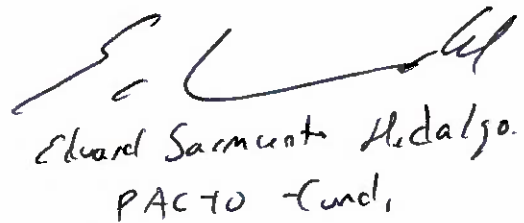 Eduard Sarmiento Hidalgo.
PACTO - Cund,